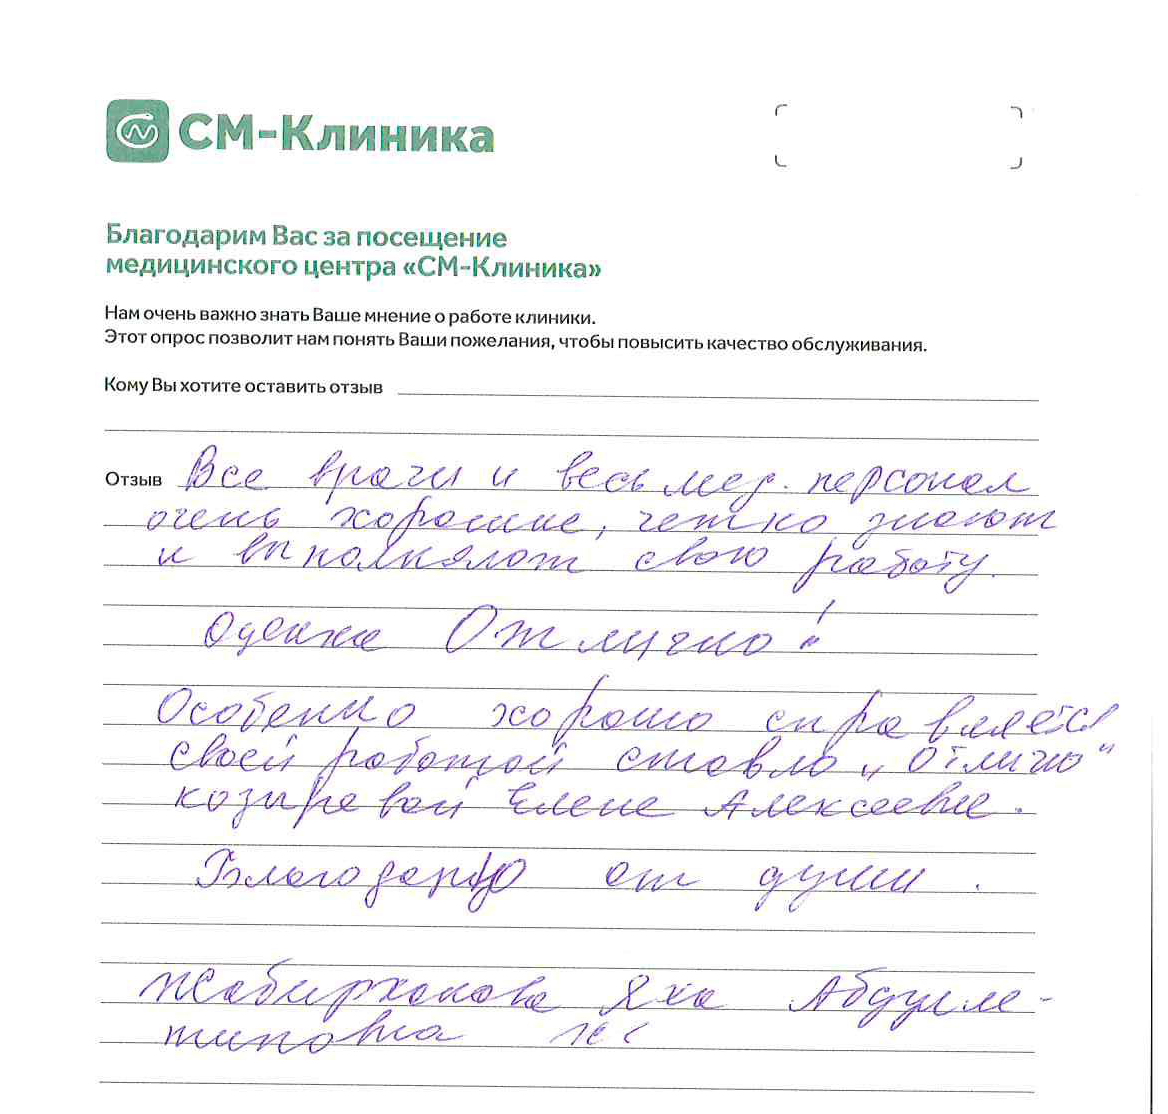 СМ-Клиника
Благодарим Вас за посещение
медицинского центра «СМ-Клиника»
Нам очень важно знать Ваше мнение о работе клиники.
Этот опрос позволит нам понять Ваши пожелания, чтобы повысить качество обслуживания.
Кому Вы хотите оставить отзыв
Отзыв Все врачи и весь мед. персонал
очень хорошие, четко знают
и выполняют свою работу.
Оценка Отлично!
Особенно хорошо справляется
своей работой ставлю „Отлично"
козыревой Елене Алексеевне.
Благодарю от души.
Жабирханова Яха Абдулме-